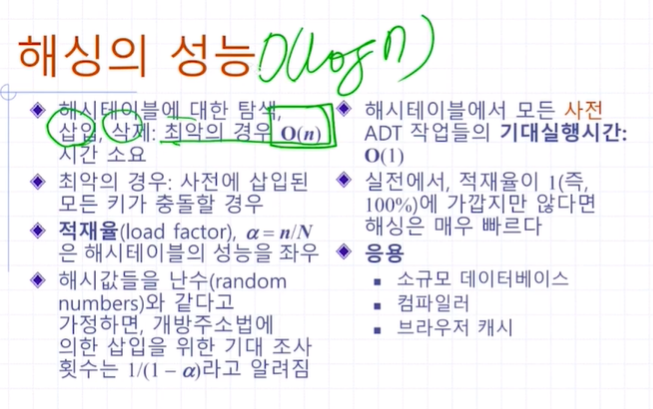 해싱의 성능 O(log n)
해시테이블에 대한 탐색,
삽입, 삭제: 최악의 경우 O(n)
시간 소요
최악의 경우: 사전에 삽입된
모든 키가 충돌할 경우
적재율(load factor), α = n/N
은 해시테이블의 성능을 좌우
해시값들을 난수(random
numbers)와 같다고
가정하면, 개방주소법에
의한 삽입을 위한 기대 조사
횟수는 1/(1 − α)라고 알려짐
해시테이블에서 모든 사전
ADT 작업들의 기대실행시간:
O(1)
실전에서, 적재율이 1(즉,
100%)에 가깝지만 않다면
해싱은 매우 빠르다
응용
소규모 데이터베이스
컴파일러
브라우저 캐시